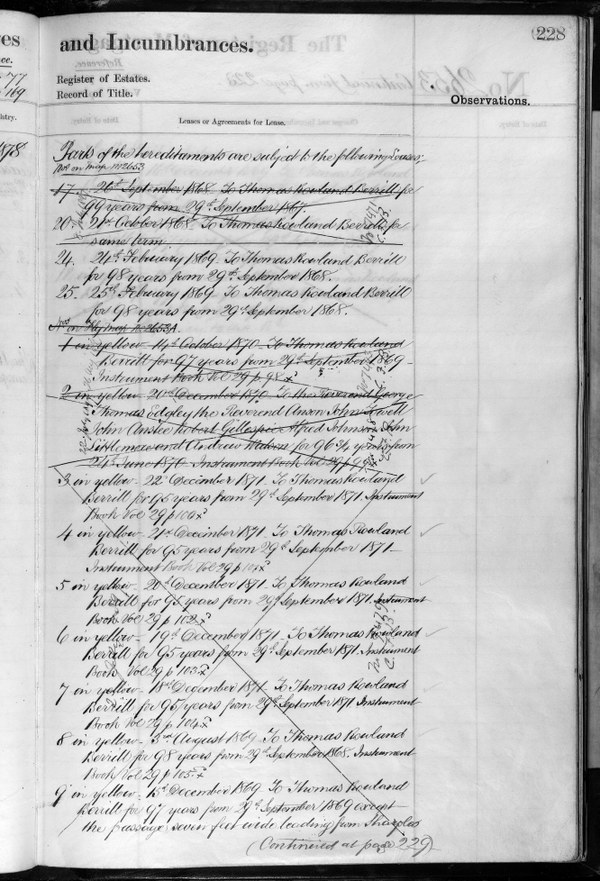 and Incumbrances.
228
Register of Estates.
Record of Title.
Observations.
Leases or Agreements for Lease.
Parts of the hereditaments are subject to the following Leases;
Nos on map No 2653
17. 26th September 1868. To Thomas Rowland Berrill for
99 years from 29th September 1867.
20. 21st October 1868. To Thomas Rowland Berrill for
same term.
24. 24th February 1869. To Thomas Rowland Berrill
for 98 years from 29th September 1868.
25. 25th February 1869. To Thomas Rowland Berrill
for 98 years from 29th September 1868.
Nos on map No 2653A.
1 in yellow - 14th October 1870 - To Thomas Rowland
Berrill for 97 years from 29th September 1869 -
Instrument Book Vol 29 p 98
2 in yellow - 20th December 1870 - To the Reverend George
Thomas Edgley the Reverend Anson John
John Anstie Robert Gillespie Alfred Johnson John
Littlemore and Andrew for 96 3/4 years from
24th June 1870 - Instrument Book Vol 29 p
3 in yellow - 22nd December 1871. To Thomas Rowland
Berrill for 95 years from 29th September 1871. Instrument
Book Vol 29 p
4 in yellow - 21st December 1871. To Thomas Rowland
Berrill for 95 years from 29th September 1871 -
Instrument Book Vol 29 p
5 in yellow - 21st December 1871. To Thomas Rowland
Berrill for 95 years from 29th September 1871. Instrument
Book Vol 29 p
6 in yellow - 19th December 1871 - To Thomas Rowland
Berrill for 95 years from 29th September 1871. Instrument
Book Vol 29 p
7 in yellow - 18th December 1871 - To Thomas Rowland
Berrill for 95 years from 29th September 1871 Instrument
Book Vol 29 p 104
8 in yellow - August 1869 To Thomas Rowland
Berrill for 98 years from 29th September 1868. Instrument
Book Vol 29 p 105
9 in yellow - December 1869 To Thomas Rowland
Berrill for 97 years from 29th September 1869 except
the passage seven feet wide leading from Sharples
(Continued at page 229)